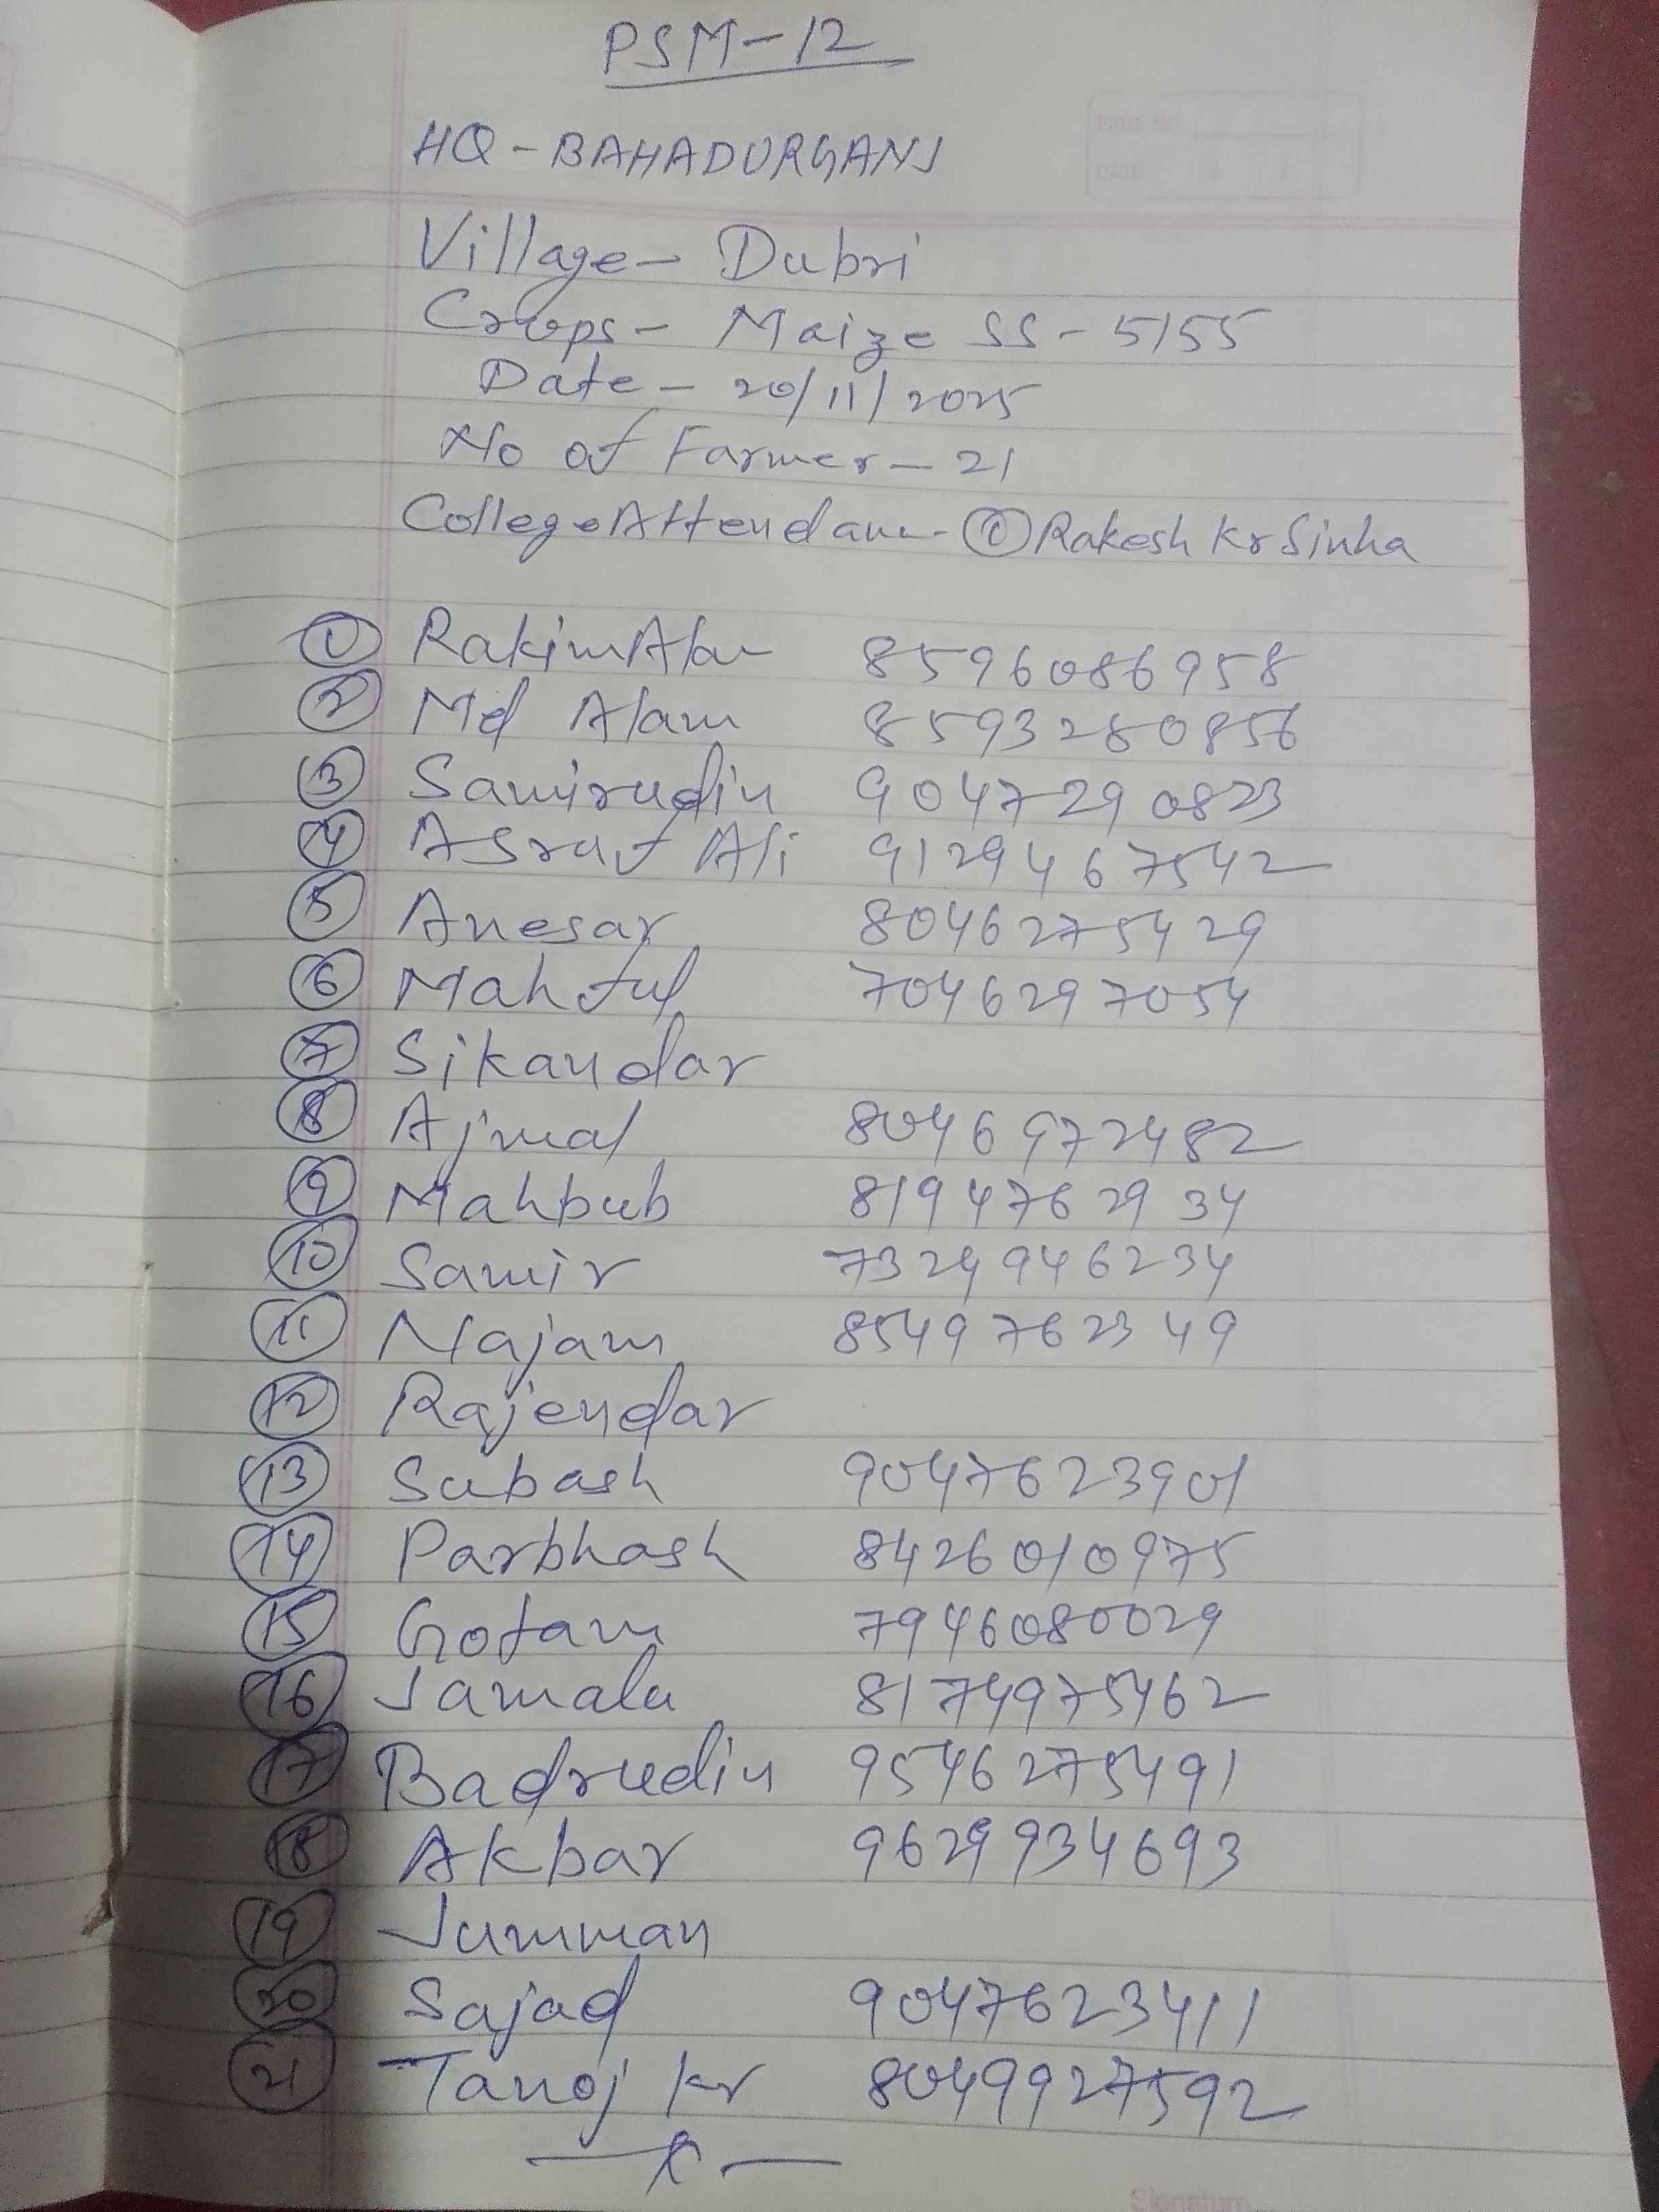 PSM-12
HQ - BAHADURGANJ
Village - Dubri
Crops - Maize SS - 5155
Date - 20/11/2025
No of Farmer - 21
College Attendanc - ① Rakesh Kr Sinha
① Rakim Alam 8596086958
② Md Alam 8593280856
③ Samirudin 9047290823
④ Asraf Ali 9129467542
⑤ Anesar 8046275429
⑥ Mahful 7046297054
⑦ Sikandar
⑧ Ajmal 8046972482
⑨ Mahbub 8194762934
⑩ Samir 7329946234
⑪ Najam 8549762349
⑫ Rajendar
⑬ Subash 9047623901
⑭ Parbhash 8426010975
⑮ Gotam 7946080029
⑯ Jamalu 8174975462
⑰ Badrudin 9546275491
⑱ Akbar 9629934693
⑲ Jumman
⑳ Sajad 9047623411
㉑ Tanoj kr 8049927592
PAGE NO
DATE
Signature